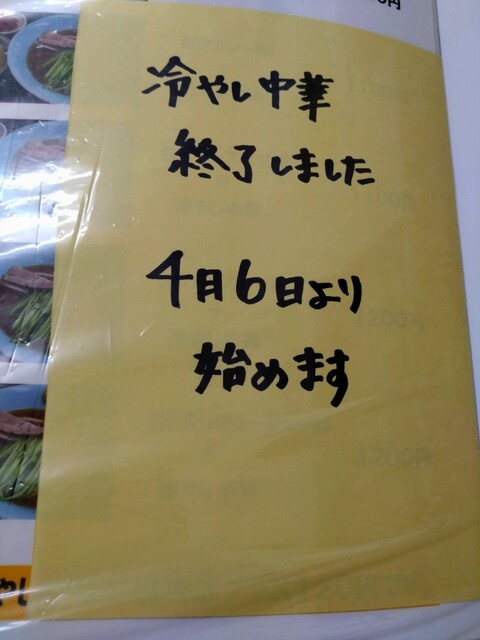 円
冷やし中華
終了しました
4月6日より
始めます
やし